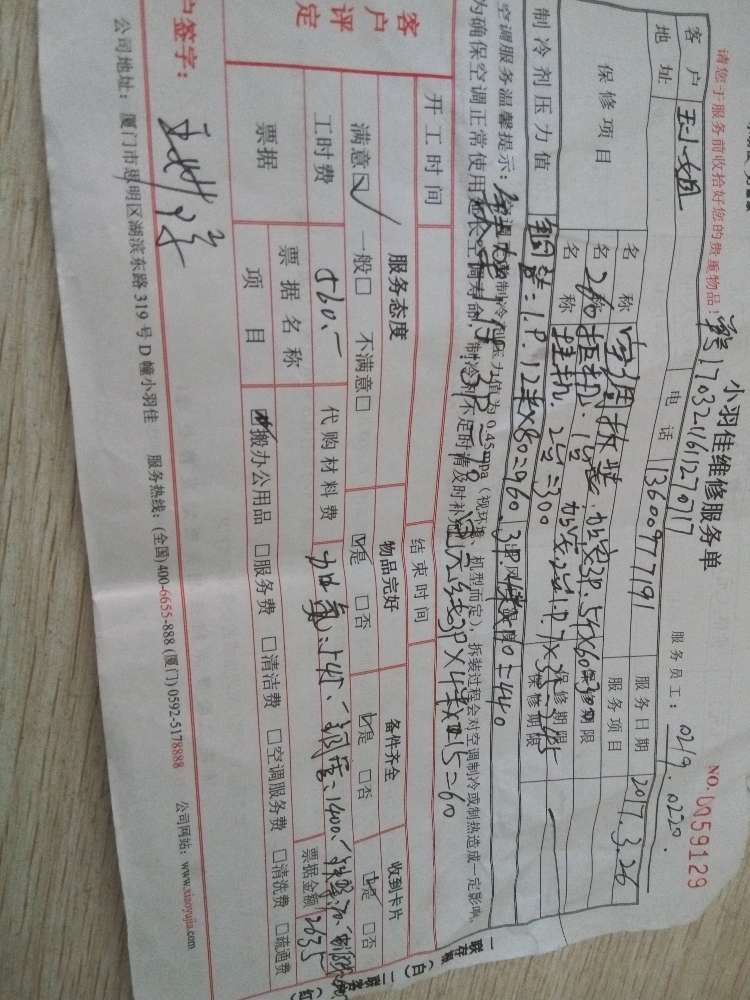 请您于服务前收拾好您的贵重物品!
小羽佳维修服务单
170321611270217
NO. 0059129
服务员工: 0219. 0220.
客户 王小姐 电话 13600977191 服务日期 2017.3.26
地址 服务项目
保修项目 名称 空调拆装 保修期限
名称 保修期限
名称 挂机. 2台=300 保修期限
制冷剂压力值 铜管=1.P. 12米×80=960. 3P. 4米×110=440
空调服务温馨提示: 空调制冷剂压力值为0.45mpa (视环境、机型而定), 拆装过程会对空调制冷或制热造成一定影响,
为确保空调正常使用延长空调寿命, 制冷剂不足时请及时补充
3P×4米×15=60
开工时间 结束时间
客户评定 服务态度 物品完好 备件齐全 收到卡片
满意☑ 一般□ 不满意□ ☑是 □否 ☑是 □否 ☑是 □否
工时费 560.- 代购材料费 加氟:545、铜管=1400、
票据 票据名称 票据金额 2635
项目 ☑搬办公用品 □服务费 □清洁费 □空调服务费 □清洗费 □疏通费
户签字:
公司地址: 厦门市思明区湖滨东路319号D幢小羽佳 服务热线: (全国)400-6655-888 (厦门)0592-5178888 公司网站: www.xiaoyujia.com
一联存根(白) 二联客